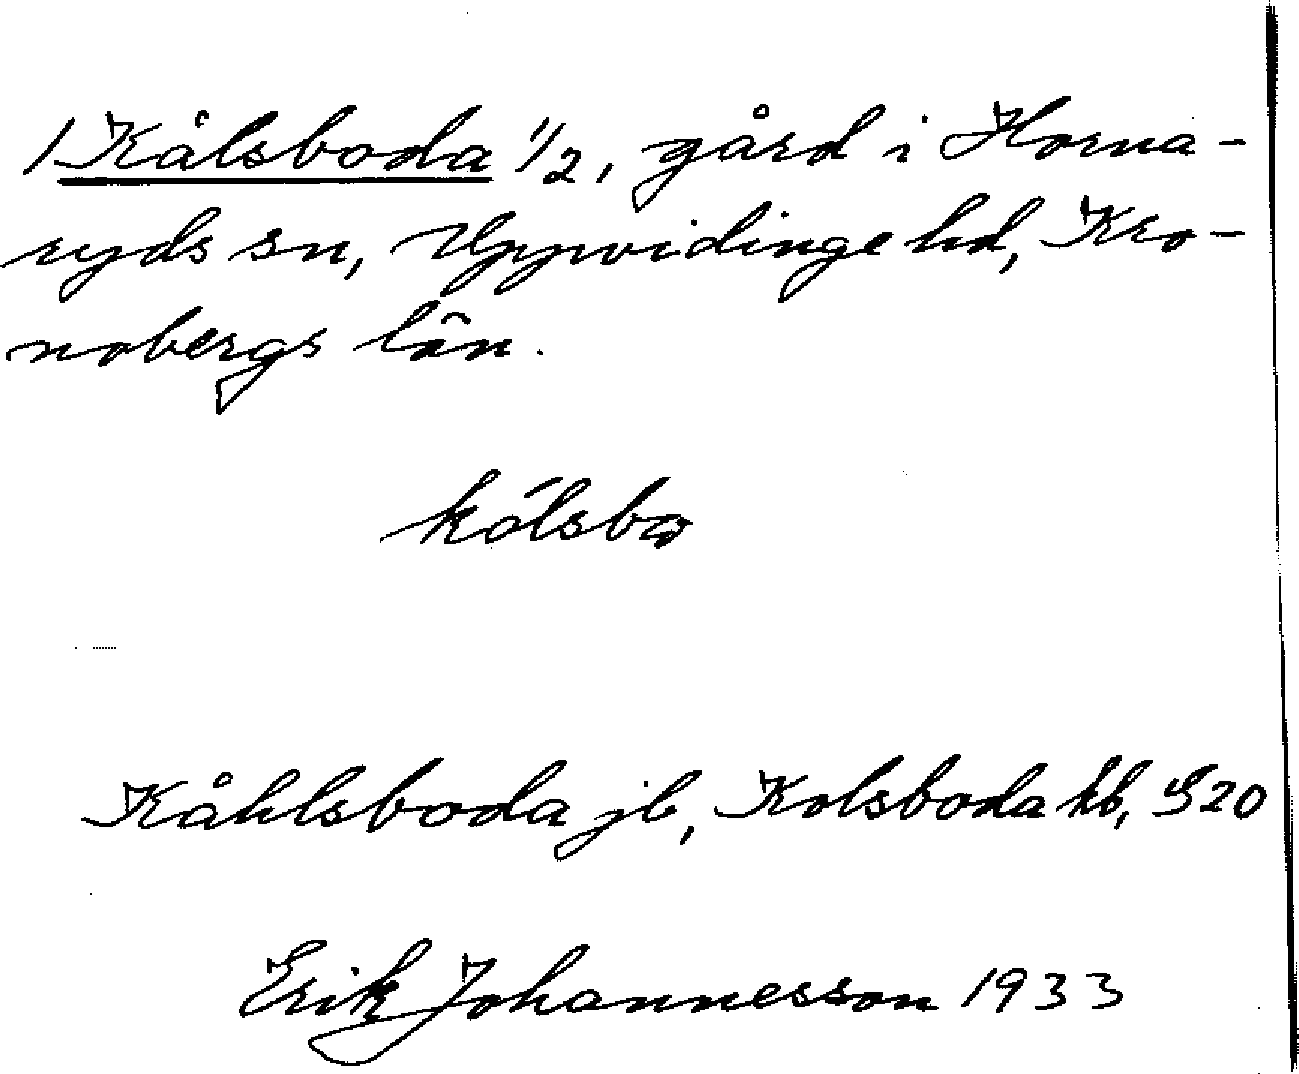 1 Kålsboda 1/2, gård i Horna-
ryds sn, Uppvidinge hd, Kro-
nobergs län.
kólsbo
Kåhlsboda jb, Kolsboda kb, S20
Erik Johannesson 1933